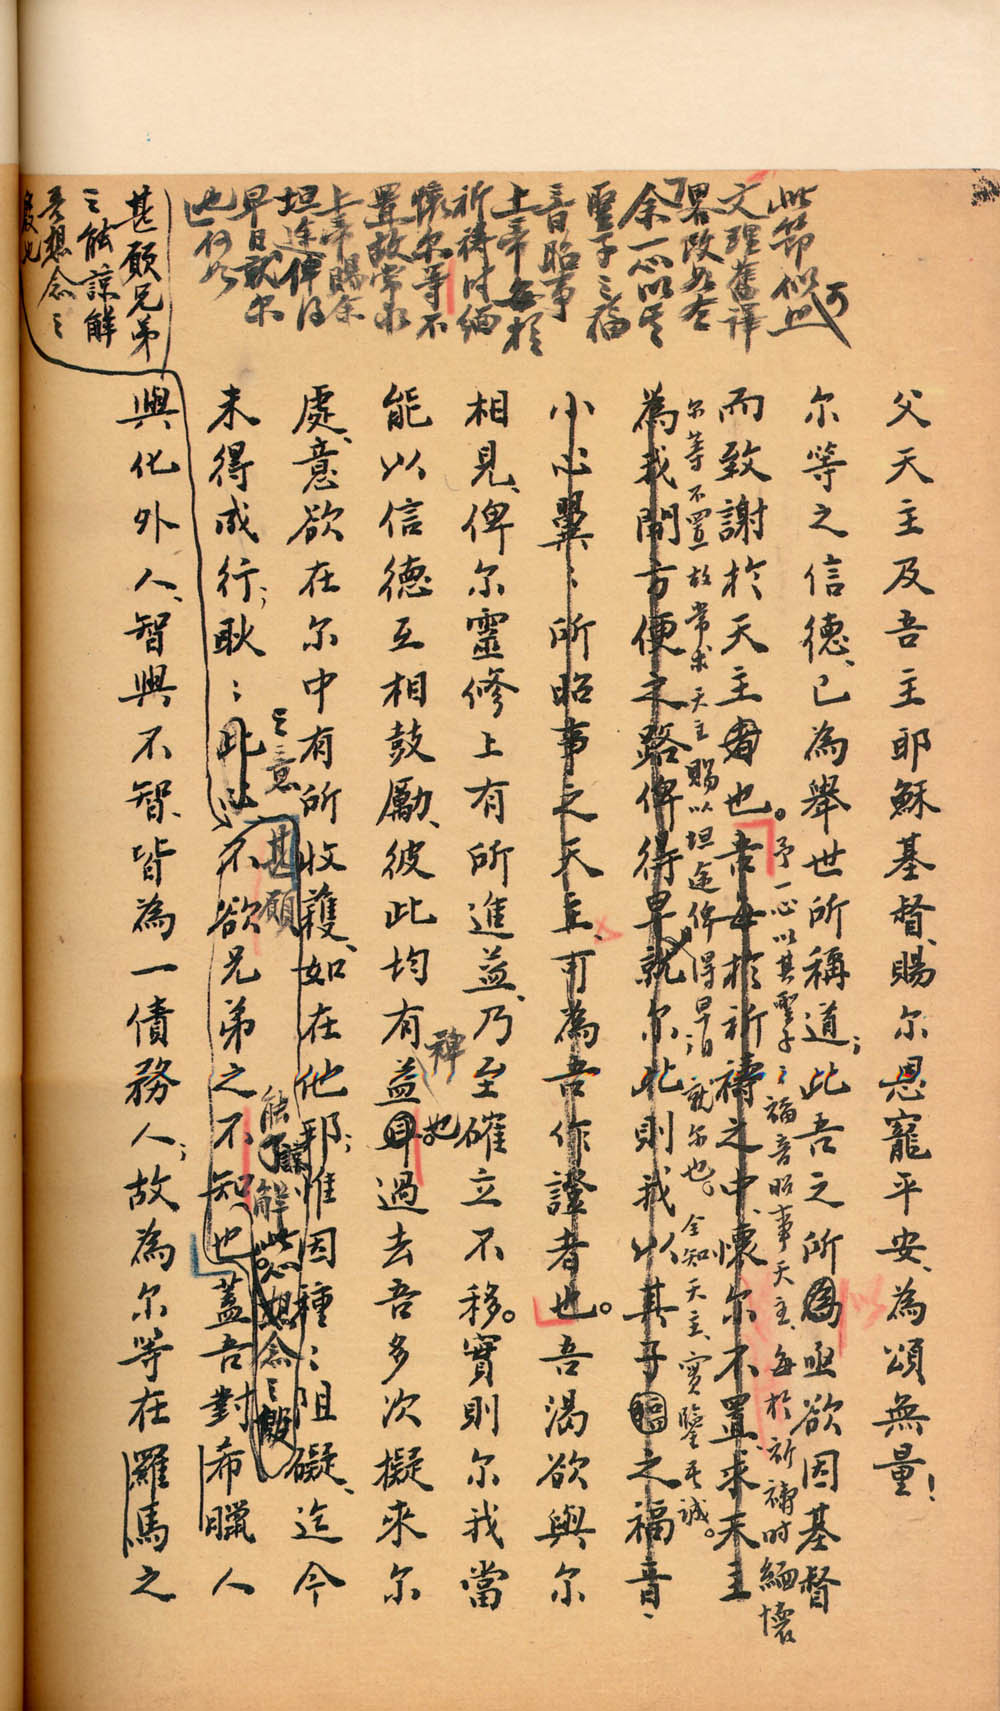 此節似無
文理舊譯
略改如左
余一心以其
聖子之福
音昭事
上帝每於
祈禱時緬
懷尔等不
置故常求
上帝賜余
坦途俾得
早日就尔
也何如
可
甚願兄弟
之能諒解
吾想念之
殷也
父天主及吾主耶穌基督、賜尔恩寵平安、為頌無量！
尔等之信德、已為舉世所稱道；此吾之所為亟欲因基督
以
而致謝於天主者也。吾每於祈禱之中、懷尔不置、求天主
予一心以其聖子之福音昭事天主、每於祈禱时緬懷
尔等不置故常求天主賜以坦途俾得早日就尔也。全知天主、實鑒吾誠。
為我開方便之路俾得早就尔此則我以其子之福音、
小心翼：所昭事之天主、可為吾作證者也。吾渴欲與尔
相見、俾尔靈修上有所進益、乃至確立不移。實則尔我當
能以信德互相鼓勵、彼此均有益也。過去吾多次擬來尔
裨
處、意欲在尔中有所收穫、如在他邦；惟因種：阻礙、迄今
之意
甚願
能了解此心想念之殷
未得成行；耿：此心不欲兄弟之不知也蓋吾對希臘人
與化外人、智與不智、皆為一債務人；故為尔等在羅馬之